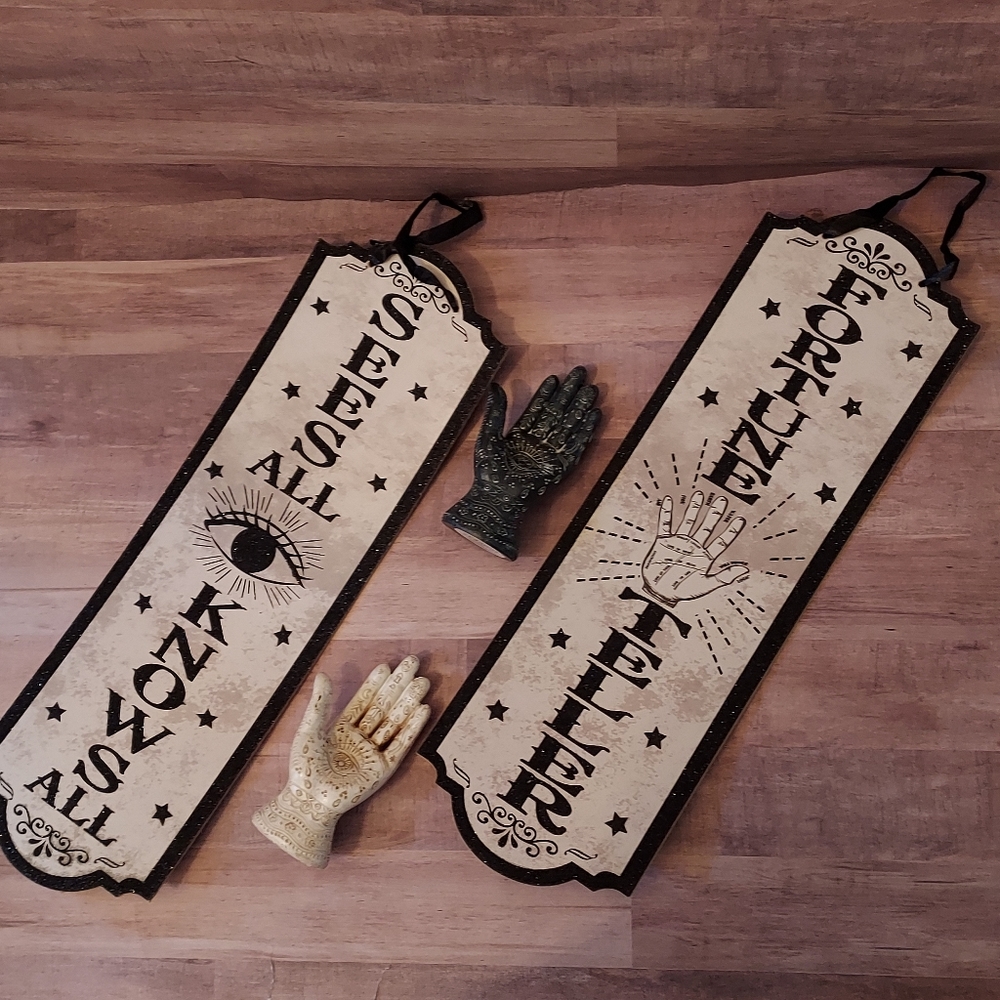 SEES
ALL
KNOWS
ALL
FORTUNE
TELLER